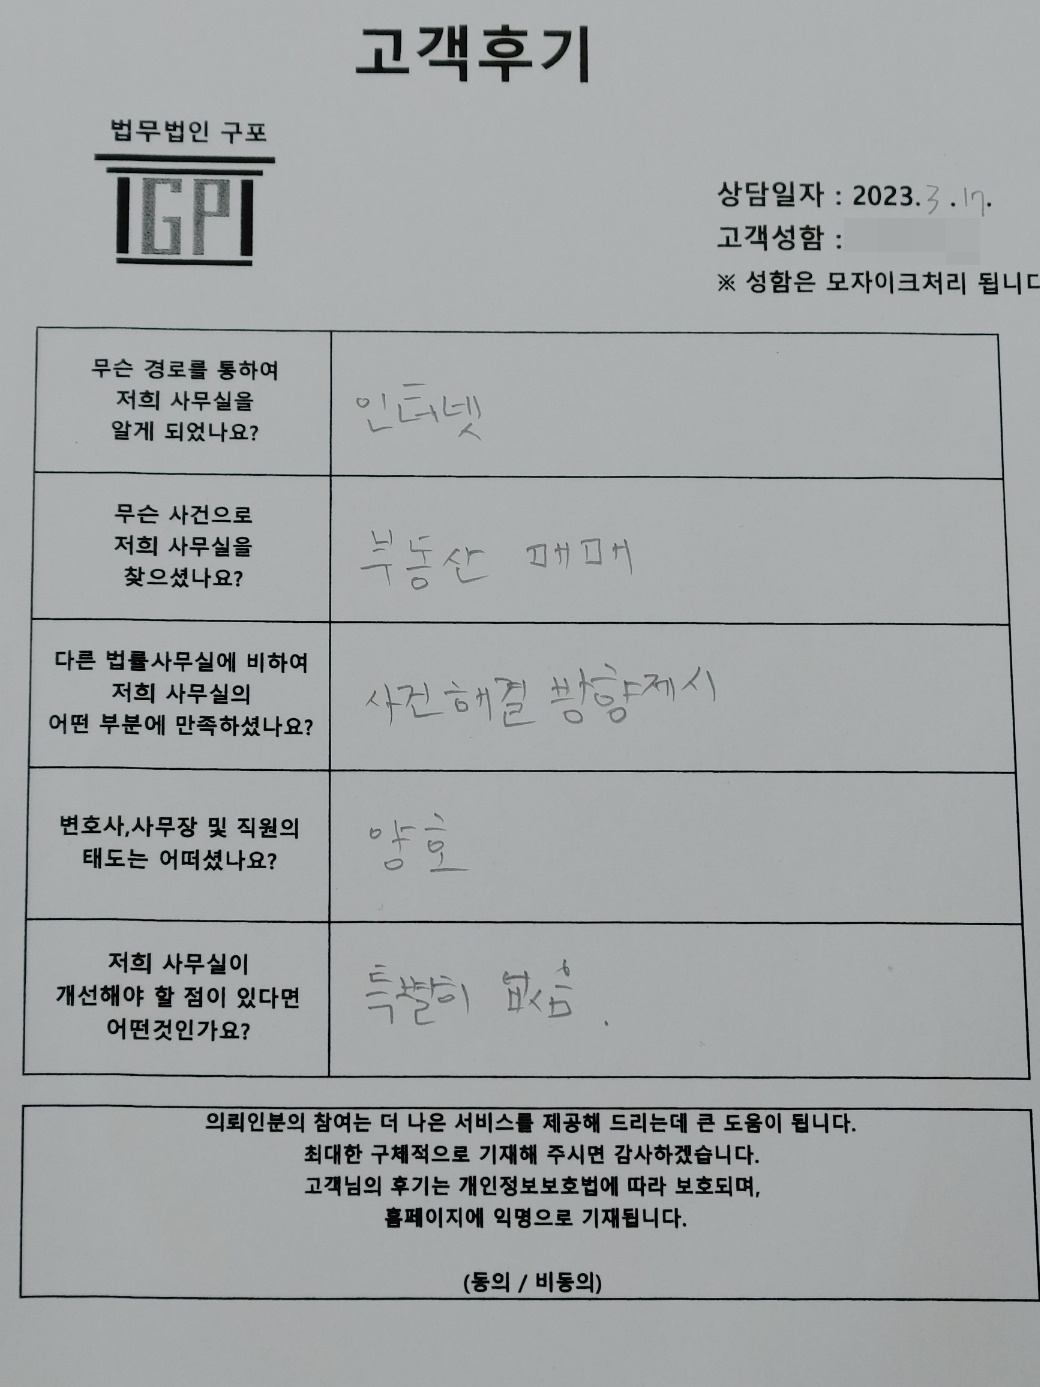 고객후기
법무법인 구포
GP
상담일자 : 2023. 3 . 17.
고객성함 :
※ 성함은 모자이크처리 됩니다
무슨 경로를 통하여
저희 사무실을
알게 되었나요?
인터넷
무슨 사건으로
저희 사무실을
찾으셨나요?
부동산 매매
다른 법률사무실에 비하여
저희 사무실의
어떤 부분에 만족하셨나요?
사건해결 방향제시
변호사,사무장 및 직원의
태도는 어떠셨나요?
양호
저희 사무실이
개선해야 할 점이 있다면
어떤것인가요?
특별히 없음.
의뢰인분의 참여는 더 나은 서비스를 제공해 드리는데 큰 도움이 됩니다.
최대한 구체적으로 기재해 주시면 감사하겠습니다.
고객님의 후기는 개인정보보호법에 따라 보호되며,
홈페이지에 익명으로 기재됩니다.
(동의 / 비동의)